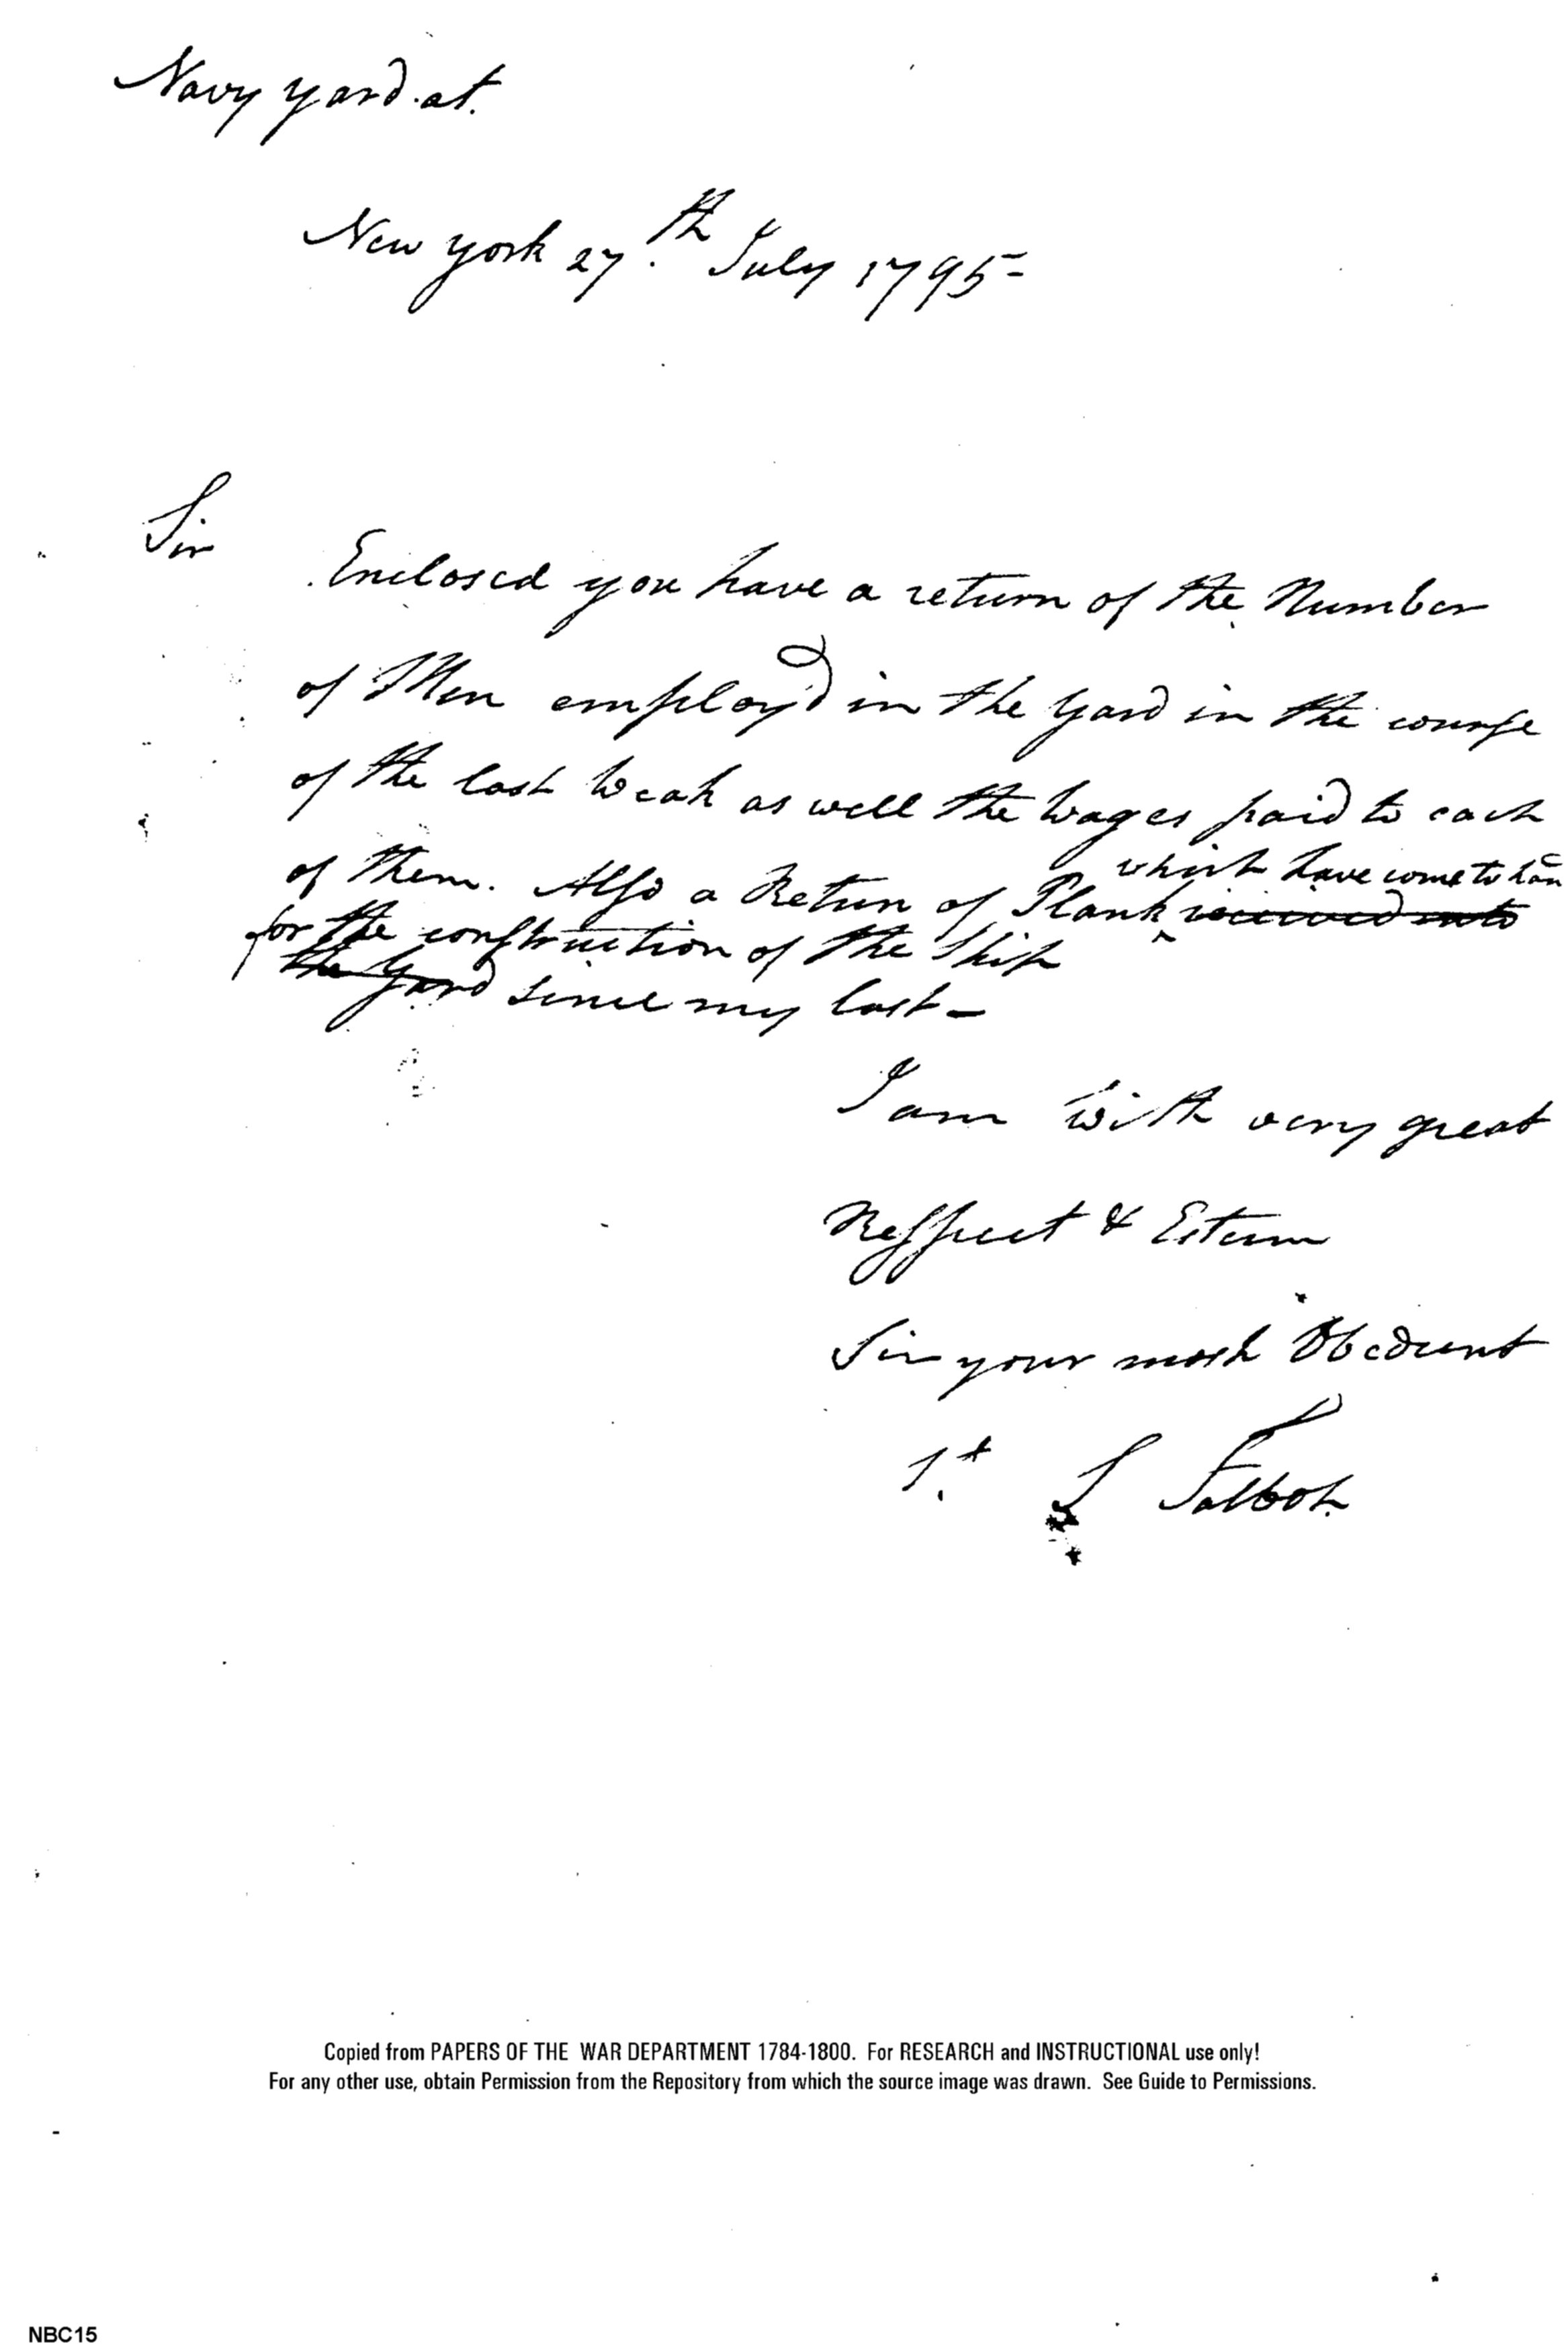 Navy yard at.
New york 27.th July 1795-
Sir
Enclosed you have a return of the Number
of Men employ'd in the Yard in the course
of the last Weak as well the Wages paid to each
which have come to han
of them. Also a Return of Plank ^ received into
for the construction of the Ship
the Yard since my last-
I am with very great
Respect & Esteem
Sir your most Obedient
St S Talbot.
Copied from PAPERS OF THE WAR DEPARTMENT 1784-1800. For RESEARCH and INSTRUCTIONAL use only!
For any other use, obtain Permission from the Repository from which the source image was drawn. See Guide to Permissions.
NBC15